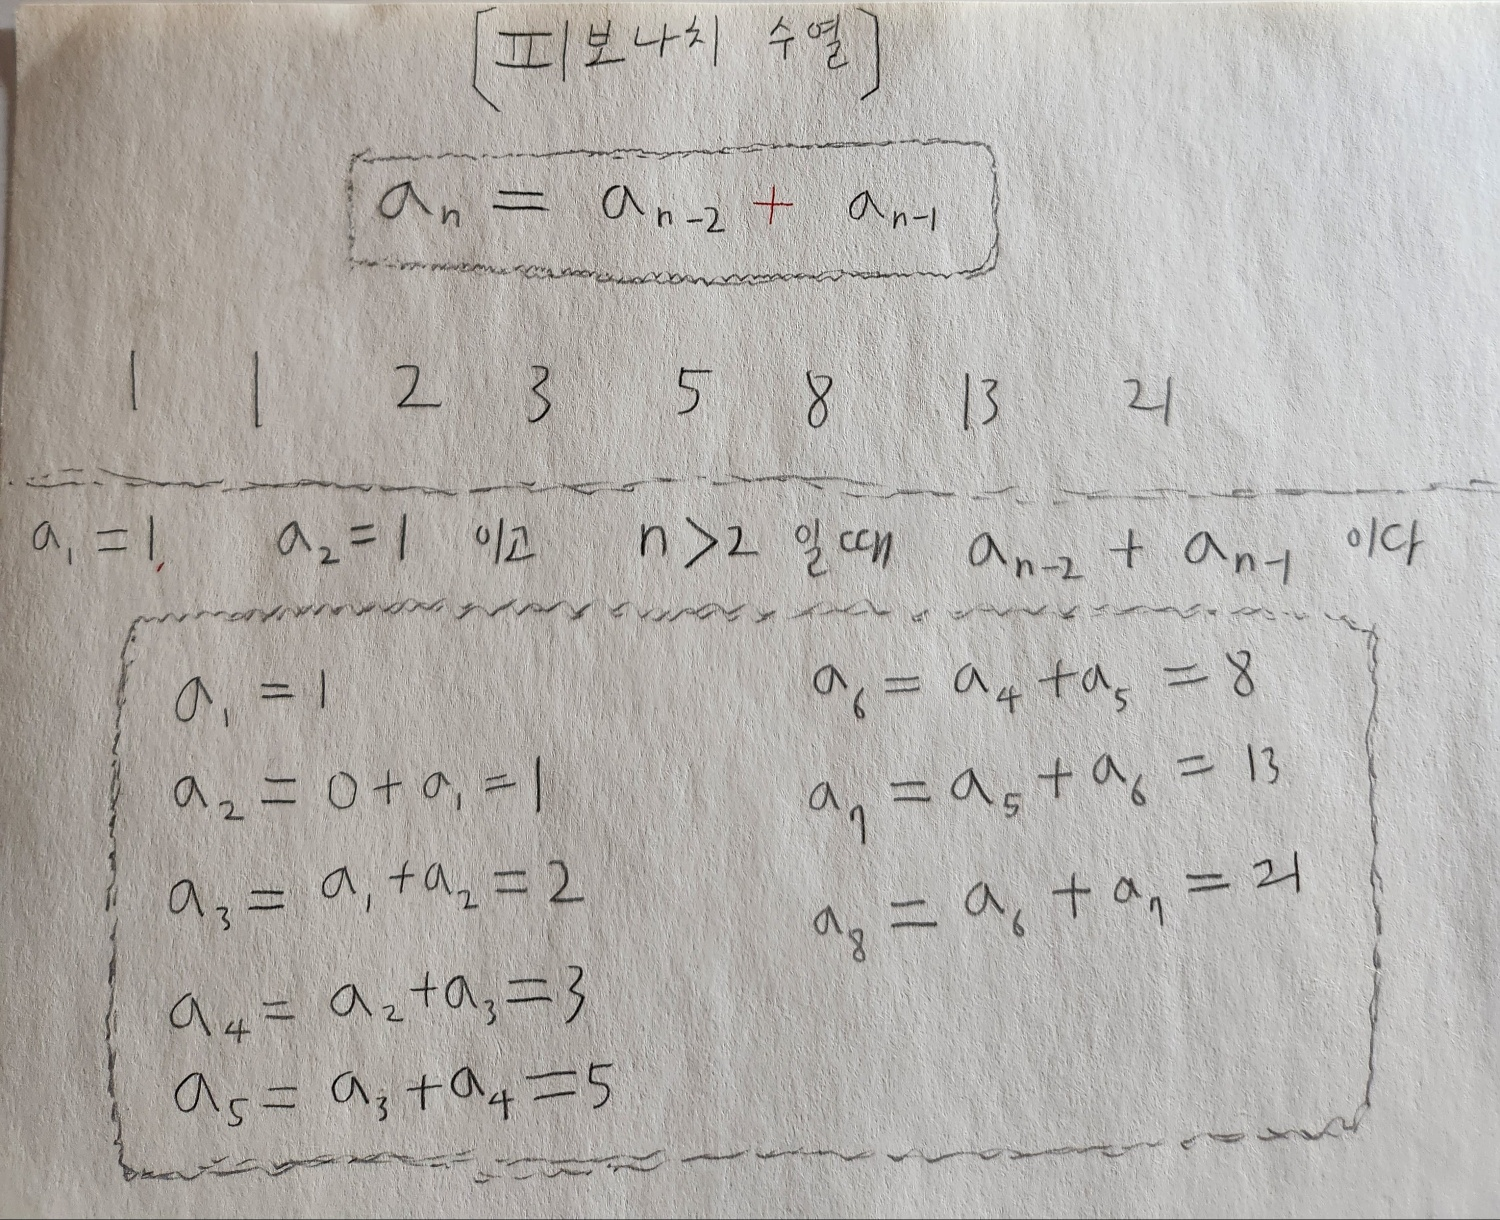 [피보나치 수열]
aₙ = aₙ₋₂ + aₙ₋₁
1 1 2 3 5 8 13 21
a₁ = 1, a₂ = 1 이고 n > 2 일 때 aₙ₋₂ + aₙ₋₁ 이다
a₁ = 1
a₂ = 0 + a₁ = 1
a₃ = a₁ + a₂ = 2
a₄ = a₂ + a₃ = 3
a₅ = a₃ + a₄ = 5
a₆ = a₄ + a₅ = 8
a₇ = a₅ + a₆ = 13
a₈ = a₆ + a₇ = 21